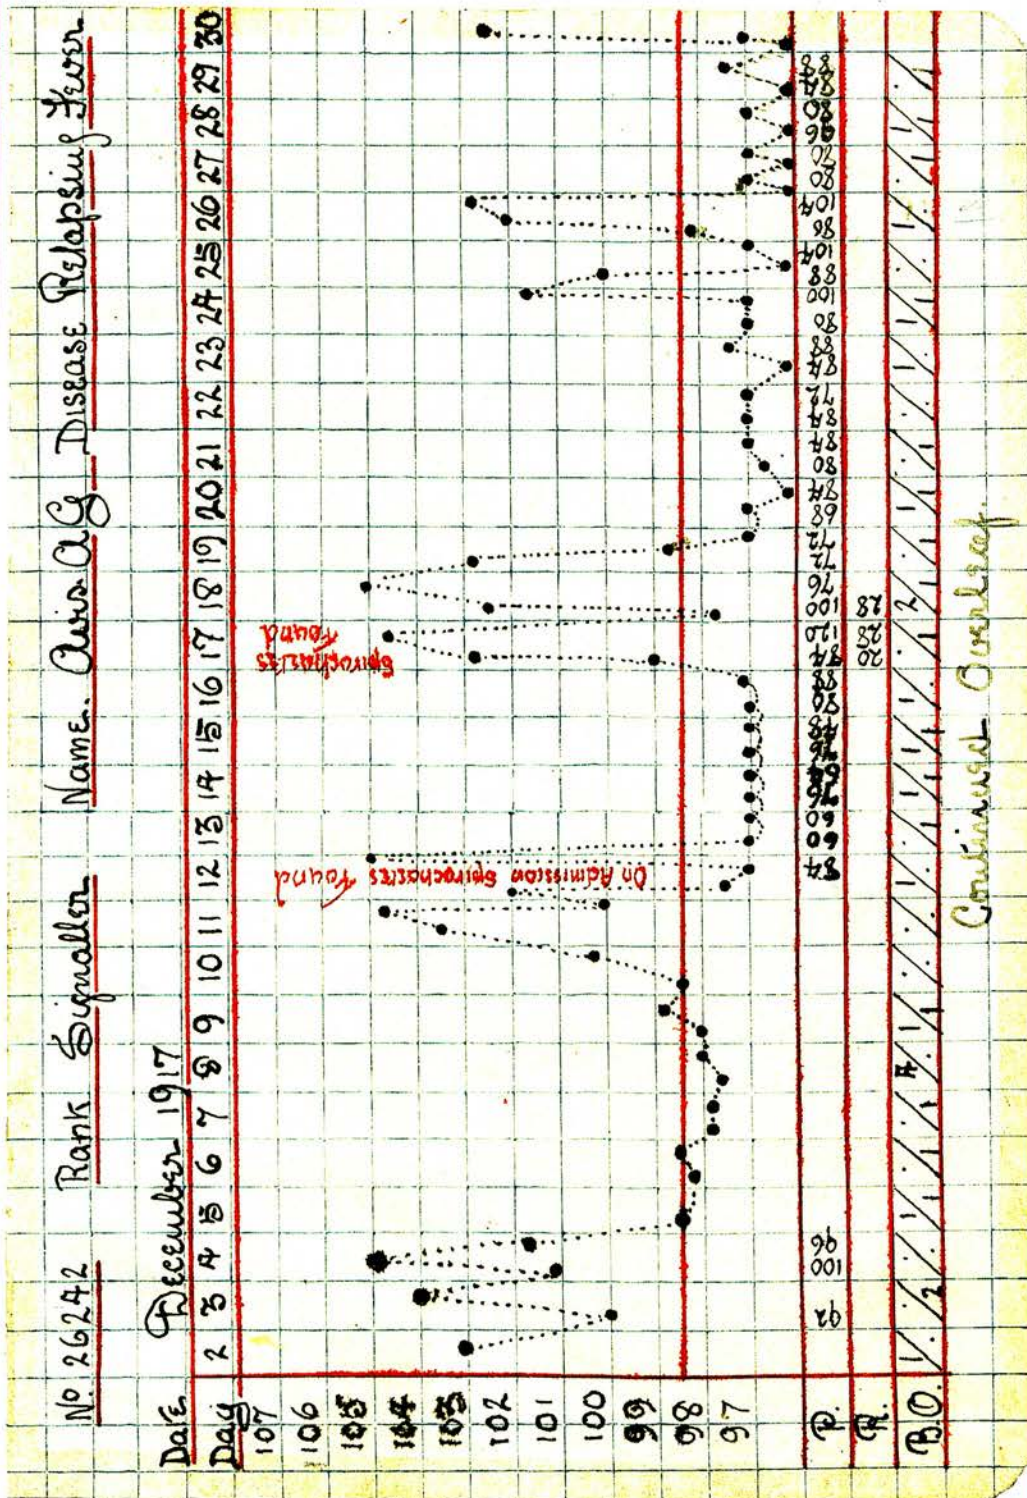 No. 26242 Rank Signaller Name. Avis. A G Disease Relapsing Fever
Date December 1917
Day 2 3 4 5 6 7 8 9 10 11 12 13 14 15 16 17 18 19 20 21 22 23 24 25 26 27 28 29 30
107
106
105
104
103
102
101
100
99
98
97
On Admission Spirochaetes Found
Spirochaetes
Found
P. 92 100 96 84 60 60 76 64 76 48 80 88 84 120 100 76 72 72 68 84 80 84 84 72 84 88 80 100 88 104 86 104 80 70 96 80 84 88
R. 20 28 28
B.O. 1 2 1 1 1 A 1 1 1 1 1 1 1 1 2 1 1 1 1 1 1 1 1 1 1
Continued Overleaf.